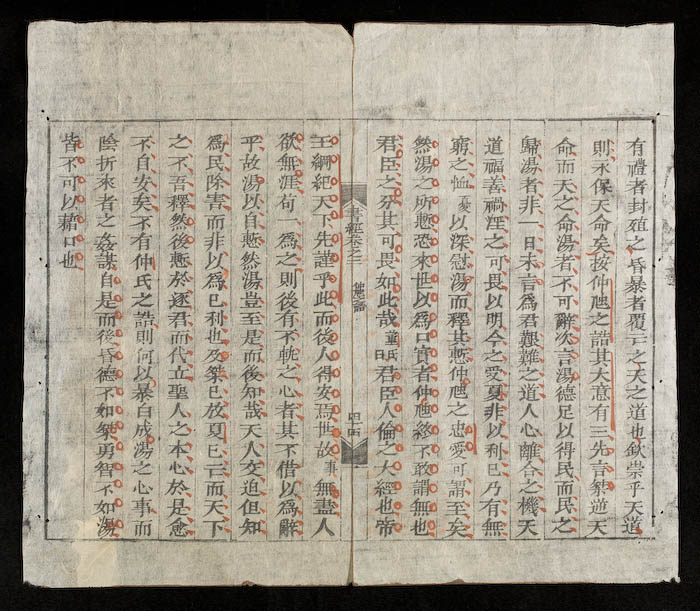 有禮者封殖之昏暴者覆亡之天之道也欽崇乎天道
則永保天命矣按仲虺之誥其大意有三先言桀逆天
命而天之命湯者不可辭次言湯德足以得民而民之
歸湯者非一日末言爲君艱難之道人心離合之機天
道福善禍淫之可畏以明今之受夏非以利己乃有無
窮之恤以深慰湯而釋其慙仲虺之忠愛可謂至矣
然湯之所慙恐來世以爲口實者仲虺終不敢謂無也
君臣之分其可畏如此哉董氏曰君臣人倫之大經也帝
書經卷之二 仲虺之誥
王綱紀天下先謹乎此而後人得安焉世故事無盡人
欲無涯苟一爲之則後有不軌之心者其不借以爲辭
乎故湯以自慙然湯豈至是而後知哉天人交迫但知
爲民除害而非以爲己利也及桀已放夏已亡而天下
之不吾釋然後慙於逐君而代立聖人之本心於是愈
不自安矣不有仲氏之誥則何以暴白成湯之心事而
陰折來者之姦謀自是而後昏德不如桀勇智不如湯
皆不可以藉口也